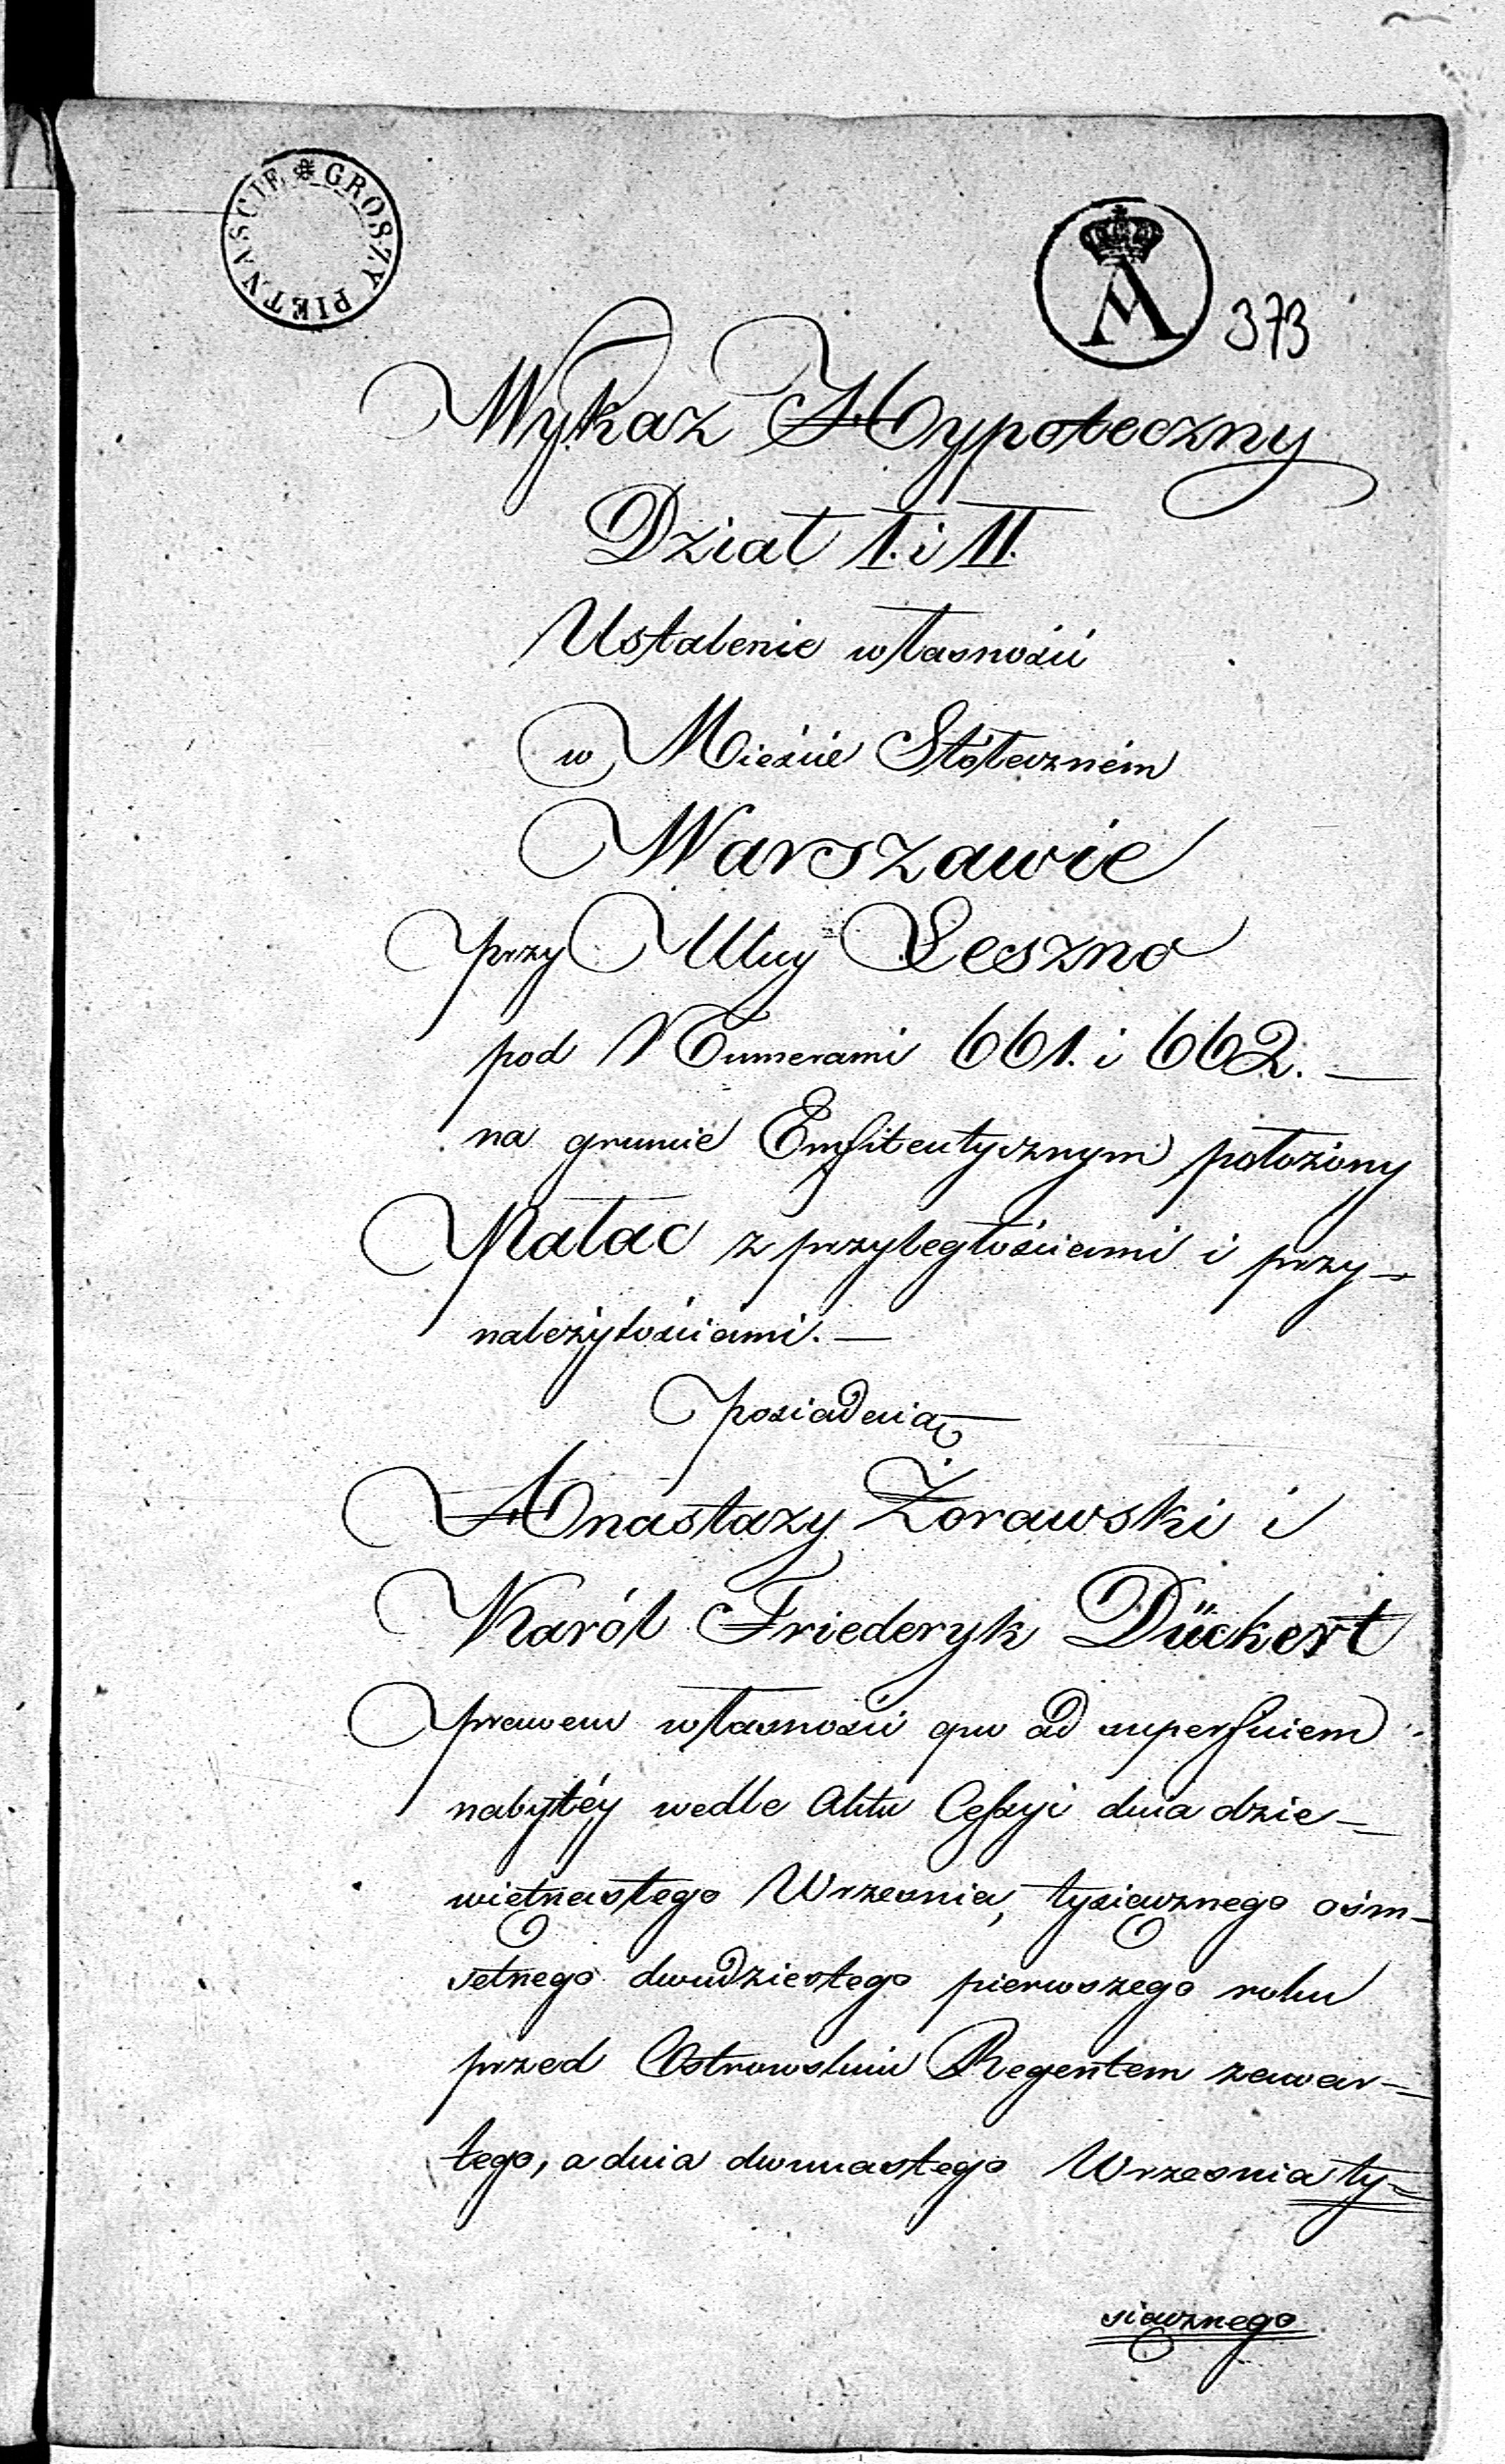 GROSZY PIĘTNAŚCIE
A
373
Wykaz Hypoteczny
Dział I. i II.
Ustalenie własności
w Mieście Stółeczném
Warszawie
przy Ulicy Leszno
pod Numerami 661. i 662. —
na gruncie Emfiteutycznym położony
Pałac z przyległościami i przy-
należytościami. —
posiadaią
Anastazy Żorawski i
Karól Friederyk Dückert
prawem własności quo ad superficiem
nabytéy wedle Aktu Cessyi dnia dzie-
więtnastego Wrzesnia, tysiącznego ośm-
setnego dwudziestego pierwszego roku
przed Ostrowskim Regentem zawar-
tego, a dnia dwunastego Wrzesnia ty-
siącznego